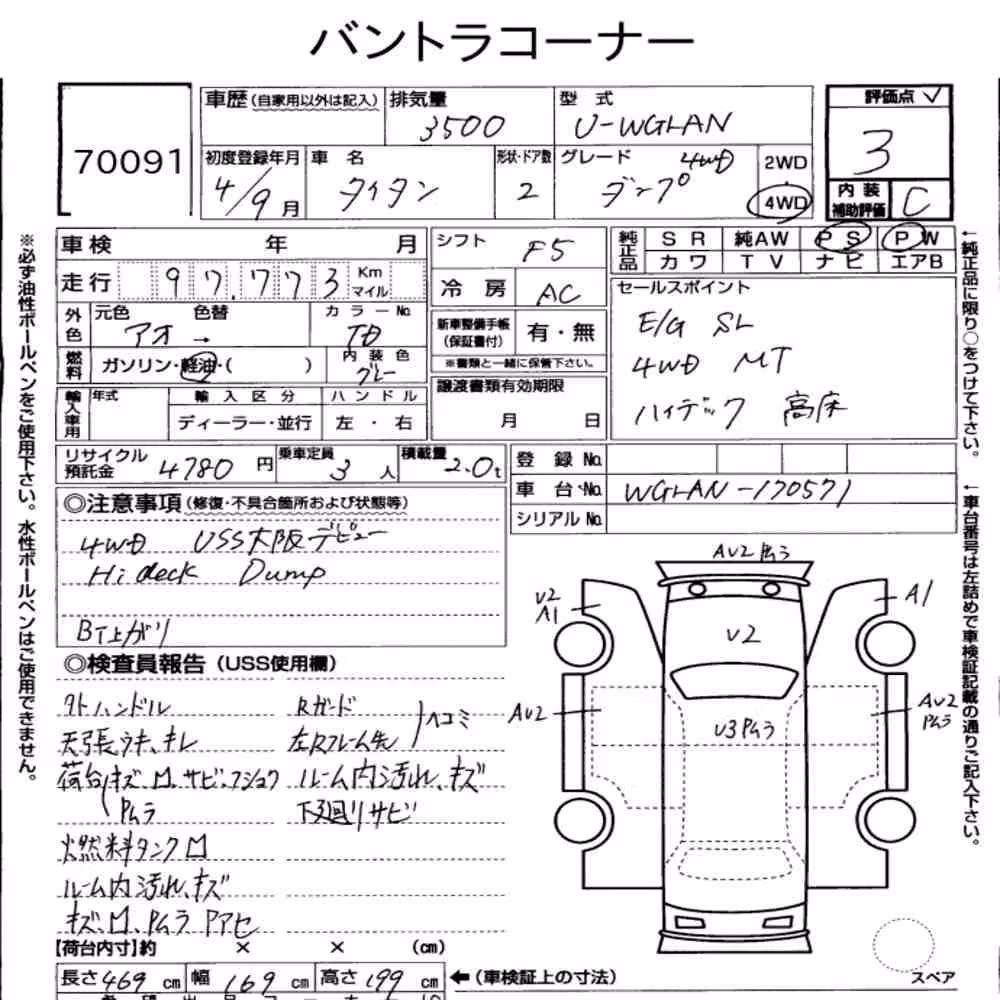 バントラコーナー
70091
車歴 (自家用以外は記入) 排気量 3500 型式 U-WGLAN
初度登録年月 4/9月 車名 タイタン 形状・ドア数 2 グレード 4WD ダンプ 2WD・4WD
評価点 ✓ 3
内装補助評価 C
車検 年 月
走行 97,773 Km マイル
外色 元色 アオ → 色替 カラーNo. TD
燃料 ガソリン・軽油・( ) 内装色 グレー
輸入車用 年式 輸入区分 ディーラー・並行 ハンドル 左・右
シフト F5
冷房 AC
新車整備手帳(保証書付) 有・無
※書類と一緒に保管下さい。
譲渡書類有効期限 月 日
純正品 SR 純AW PS PW
カワ TV ナビ エアB
セールスポイント
E/G SL
4WD MT
ハイデック 高床
リサイクル預託金 4780円 乗車定員 3人 積載量 2.0t
登録No.
車台No. WGLAN-170571
シリアルNo.
◎注意事項 (修復・不具合箇所および状態等)
4WD USS大阪デビュー
Hi deck Dump
BT上がり
◎検査員報告 (USS使用欄)
外ハンドル Rガード
天張ウキ、キレ 左Rフレーム先 ヘコミ
荷台キズ、凹、サビ、フショク ルーム内汚れ、キズ
Pムラ 下廻りサビ
燃料タンク凹
ルーム内汚れ、キズ
キズ、凹、Pムラ Pアセ
【荷台内寸】約 × × (cm)
長さ 469 cm 幅 169 cm 高さ 199 cm ←(車検証上の寸法)
AU2 Pムラ
U2
A1
A1
U2
AU2
U3Pムラ
AU2
Pムラ
スペア
※必ず油性ボールペンをご使用下さい。水性ボールペンはご使用できません。
←純正品に限り○をつけて下さい。
←車台番号は左詰めで車検証記載の通りご記入下さい。